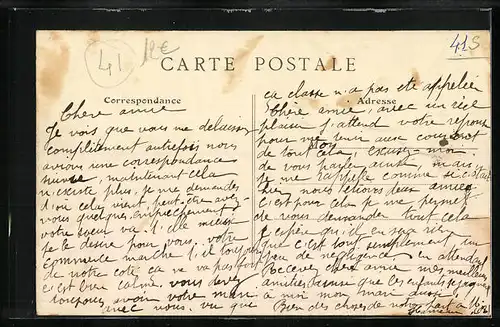 41
12€
41S
CARTE POSTALE
Correspondance
Adresse
Chère amie
Je vois que vous me délaissez
complètement autrefois nous
avions une correspondance
suivie, maintenant cela
n'existe plus, je me demande
d'où cela vient, peut-être avez-
vous quelques empêchements
votre sœur va t'elle mieux
je le désire pour vous, votre
commerce marche t'il toujours
de notre côté ça ne va pas fort
c'est bien calme. vous devez
toujours avoir votre mari
avec vous, vu que
sa classe n'a pas été appelée
Chère amie, avec un réel
plaisir j'attend votre réponse
pour me tenir au courant
de tout cela, excusez-moi
de vous parler ainsi, mais
je me rappelle comme si c'était
hier, nous étions deux amies
c'est pour cela je me permet
de vous demander tout cela
j'espère qu'il en sera rien
que c'est tout simplement un
peu de négligence, en attendant
Recevez chère amie mes meilleures
amitiés ainsi que les enfants
à moi mon mari aussi
Bien des choses de notre part à